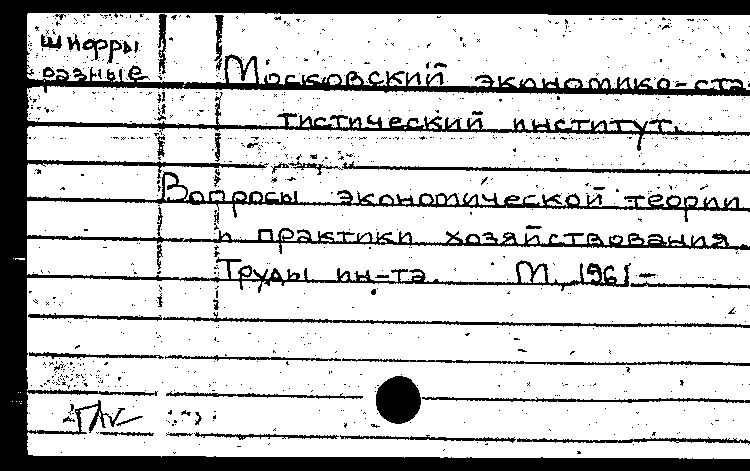 шифры
разные
Московский экономико-ста-
тистический институт.
Вопросы экономической теории
и практики хозяйствования.
Труды ин-та. М., 1961-